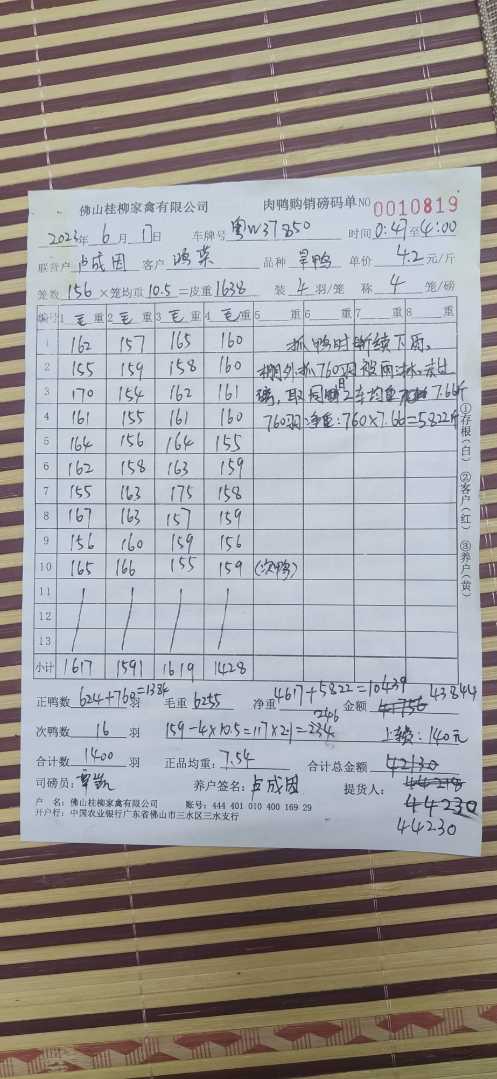 佛山桂柳家禽有限公司 肉鸭购销磅码单 NO 0010819
2023年 6月 17日 车牌号 粤W37850 时间 0:47至4:00
联营户 卢成因 客户 鸿荣 品种 旱鸭 单价 4.2元/斤
笼数 156 ×笼均重 10.5 =皮重 1638 装 4 羽/笼 称 4 笼/磅
编号 1 毛 重 2 毛 重 3 毛 重 4 毛 重 5 重 6 重 7 重 8 重
1 162 157 165 160 抓鸭时断续下雨,
2 155 159 158 160 棚外抓760羽被雨淋
3 170 154 162 161 取同日2车均重 7.66斤
4 161 155 161 160 760羽净重:760×7.66=5822斤
5 164 156 164 155
6 162 158 163 159
7 155 163 175 158
8 167 163 157 159
9 156 160 159 156
10 165 166 155 159 (次鸭)
11
12
13
小计 1617 1591 1619 1428
正鸭数 624+760=1384 羽 毛重 6255 净重 4617+5822=10439 金额 41756 43844
次鸭数 16 羽 159-4×10.5=117×2=234 246 上鸭:140元
合计数 1400 羽 正品均重: 7.54 合计总金额 42130
司磅员: 养户签名:卢成因 提货人: 44218
44230
44230
户 名:佛山桂柳家禽有限公司 账号:444 401 010 400 169 29
开户行:中国农业银行广东省佛山市三水区三水支行
①存根(白) ②客户(红) ③养户(黄)